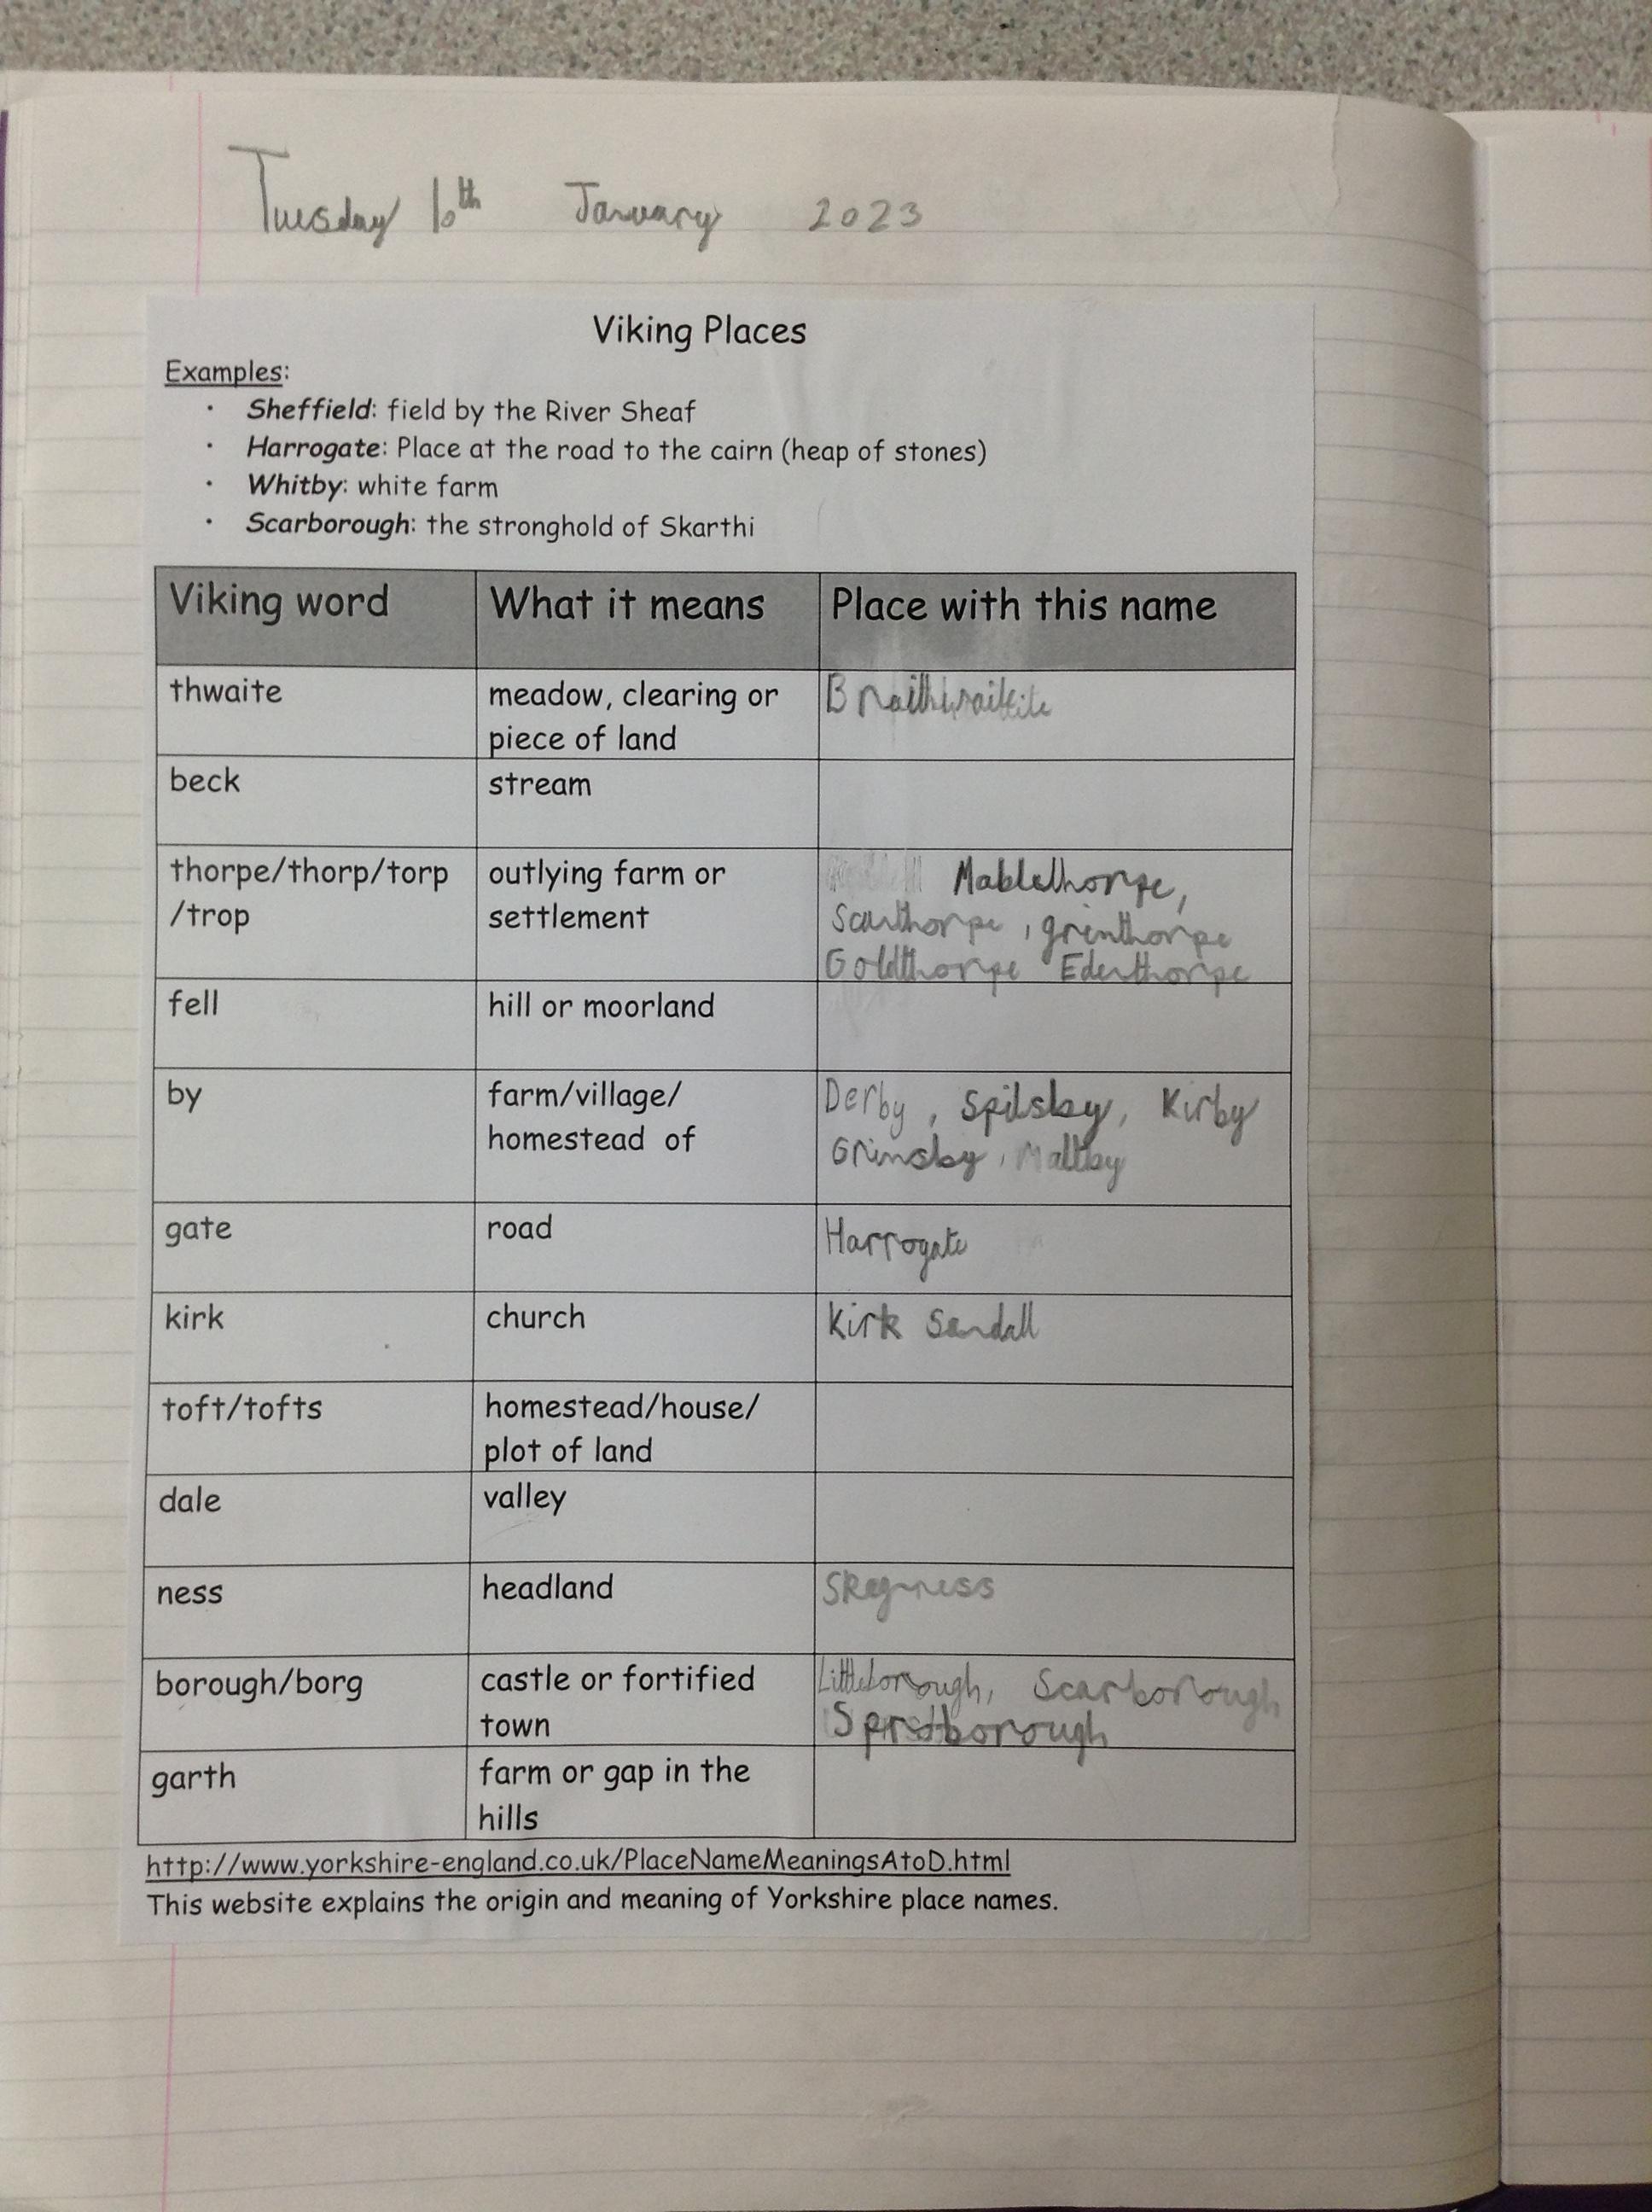 Tuesday 10th January 2023
Viking Places
Examples:
· Sheffield: field by the River Sheaf
· Harrogate: Place at the road to the cairn (heap of stones)
· Whitby: white farm
· Scarborough: the stronghold of Skarthi
Viking word What it means Place with this name
thwaite meadow, clearing or
piece of land
beck stream
thorpe/thorp/torp outlying farm or Mablethorpe,
/trop settlement Scunthorpe, grimthorpe
Goldthorpe Edenthorpe
fell hill or moorland
by farm/village/ Derby, Spilsby, Kirby
homestead of Grimsby, Maltby
gate road Harrogate
kirk church Kirk Sandall
toft/tofts homestead/house/
plot of land
dale valley
ness headland Skegness
borough/borg castle or fortified Littleborough, Scarborough
town
garth farm or gap in the
hills
http://www.yorkshire-england.co.uk/PlaceNameMeaningsAtoD.html
This website explains the origin and meaning of Yorkshire place names.